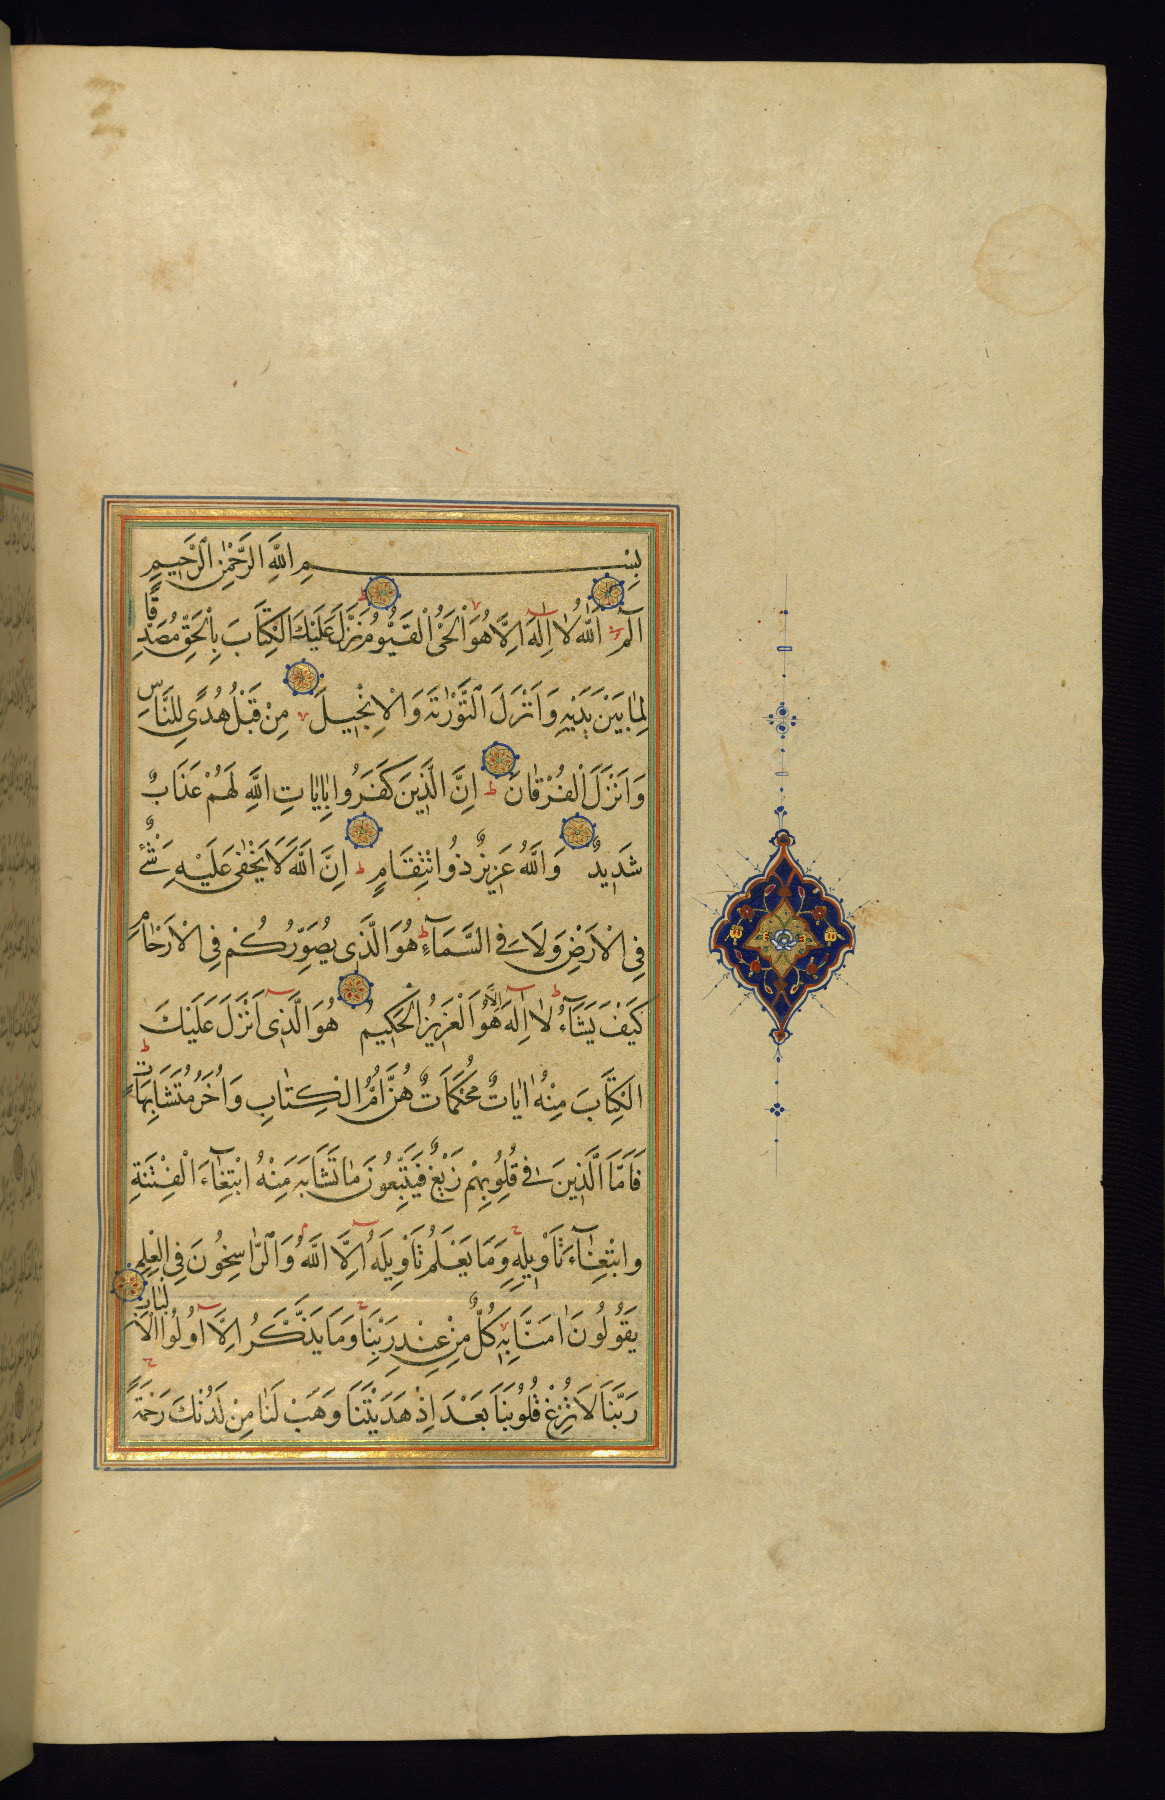 بِسْمِ اللَّهِ الرَّحْمٰنِ الرَّحِيمِ
الٓمٓ اَللّٰهُ لٰٓا اِلٰهَ اِلَّا هُوَ الْحَىُّ الْقَيُّومُ نَزَّلَ عَلَيْكَ الْكِتَابَ بِالْحَقِّ مُصَدِّقًا
لِمٰا بَيْنَ يَدَيْهِ وَاَنْزَلَ التَّوْرٰيةَ وَالْاِنْجِيلَ مِنْ قَبْلُ هُدًى لِلنَّاسِ
وَاَنْزَلَ الْفُرْقٰانَ اِنَّ الَّذِينَ كَفَرُوا بِاٰيَاتِ اللَّهِ لَهُمْ عَذَابٌ
شَدِيدٌ وَاللَّهُ عَزِيزٌ ذُو انْتِقَامٍ اِنَّ اللَّهَ لَا يَخْفٰى عَلَيْهِ شَىْءٌ
فِى الْاَرْضِ وَلَا فِى السَّمَآءِ هُوَ الَّذِى يُصَوِّرُكُمْ فِى الْاَرْحٰامِ
كَيْفَ يَشَآءُ لٰٓا اِلٰهَ اِلَّا هُوَ الْعَزِيزُ الْحَكِيمُ هُوَ الَّذِٓى اَنْزَلَ عَلَيْكَ
الْكِتَابَ مِنْهُ اٰيٰاتٌ مُحْكَمَاتٌ هُنَّ اُمُّ الْكِتٰابِ وَاُخَرُ مُتَشَابِهَاتٌ
فَاَمَّا الَّذِينَ فِى قُلُوبِهِمْ زَيْغٌ فَيَتَّبِعُونَ مٰا تَشَابَهَ مِنْهُ ابْتِغٰٓاءَ الْفِتْنَةِ
وابْتِغٰٓاءَ تَاْوِيلِهِ وَمَا يَعْلَمُ تَاْوِيلَهُ اِلَّا اللَّهُ وَالرّٰاسِخُونَ فِى الْعِلْمِ
يَقُولُونَ اٰمَنَّا بِهِ كُلٌّ مِنْ عِنْدِ رَبِّنَا وَمَا يَذَّكَّرُ اِلَّٓا اُولُوا الْاَلْبَابِ
رَبَّنَا لَا تُزِغْ قُلُوبَنَا بَعْدَ اِذْ هَدَيْتَنَا وَهَبْ لَنٰا مِنْ لَدُنْكَ رَحْمَةً